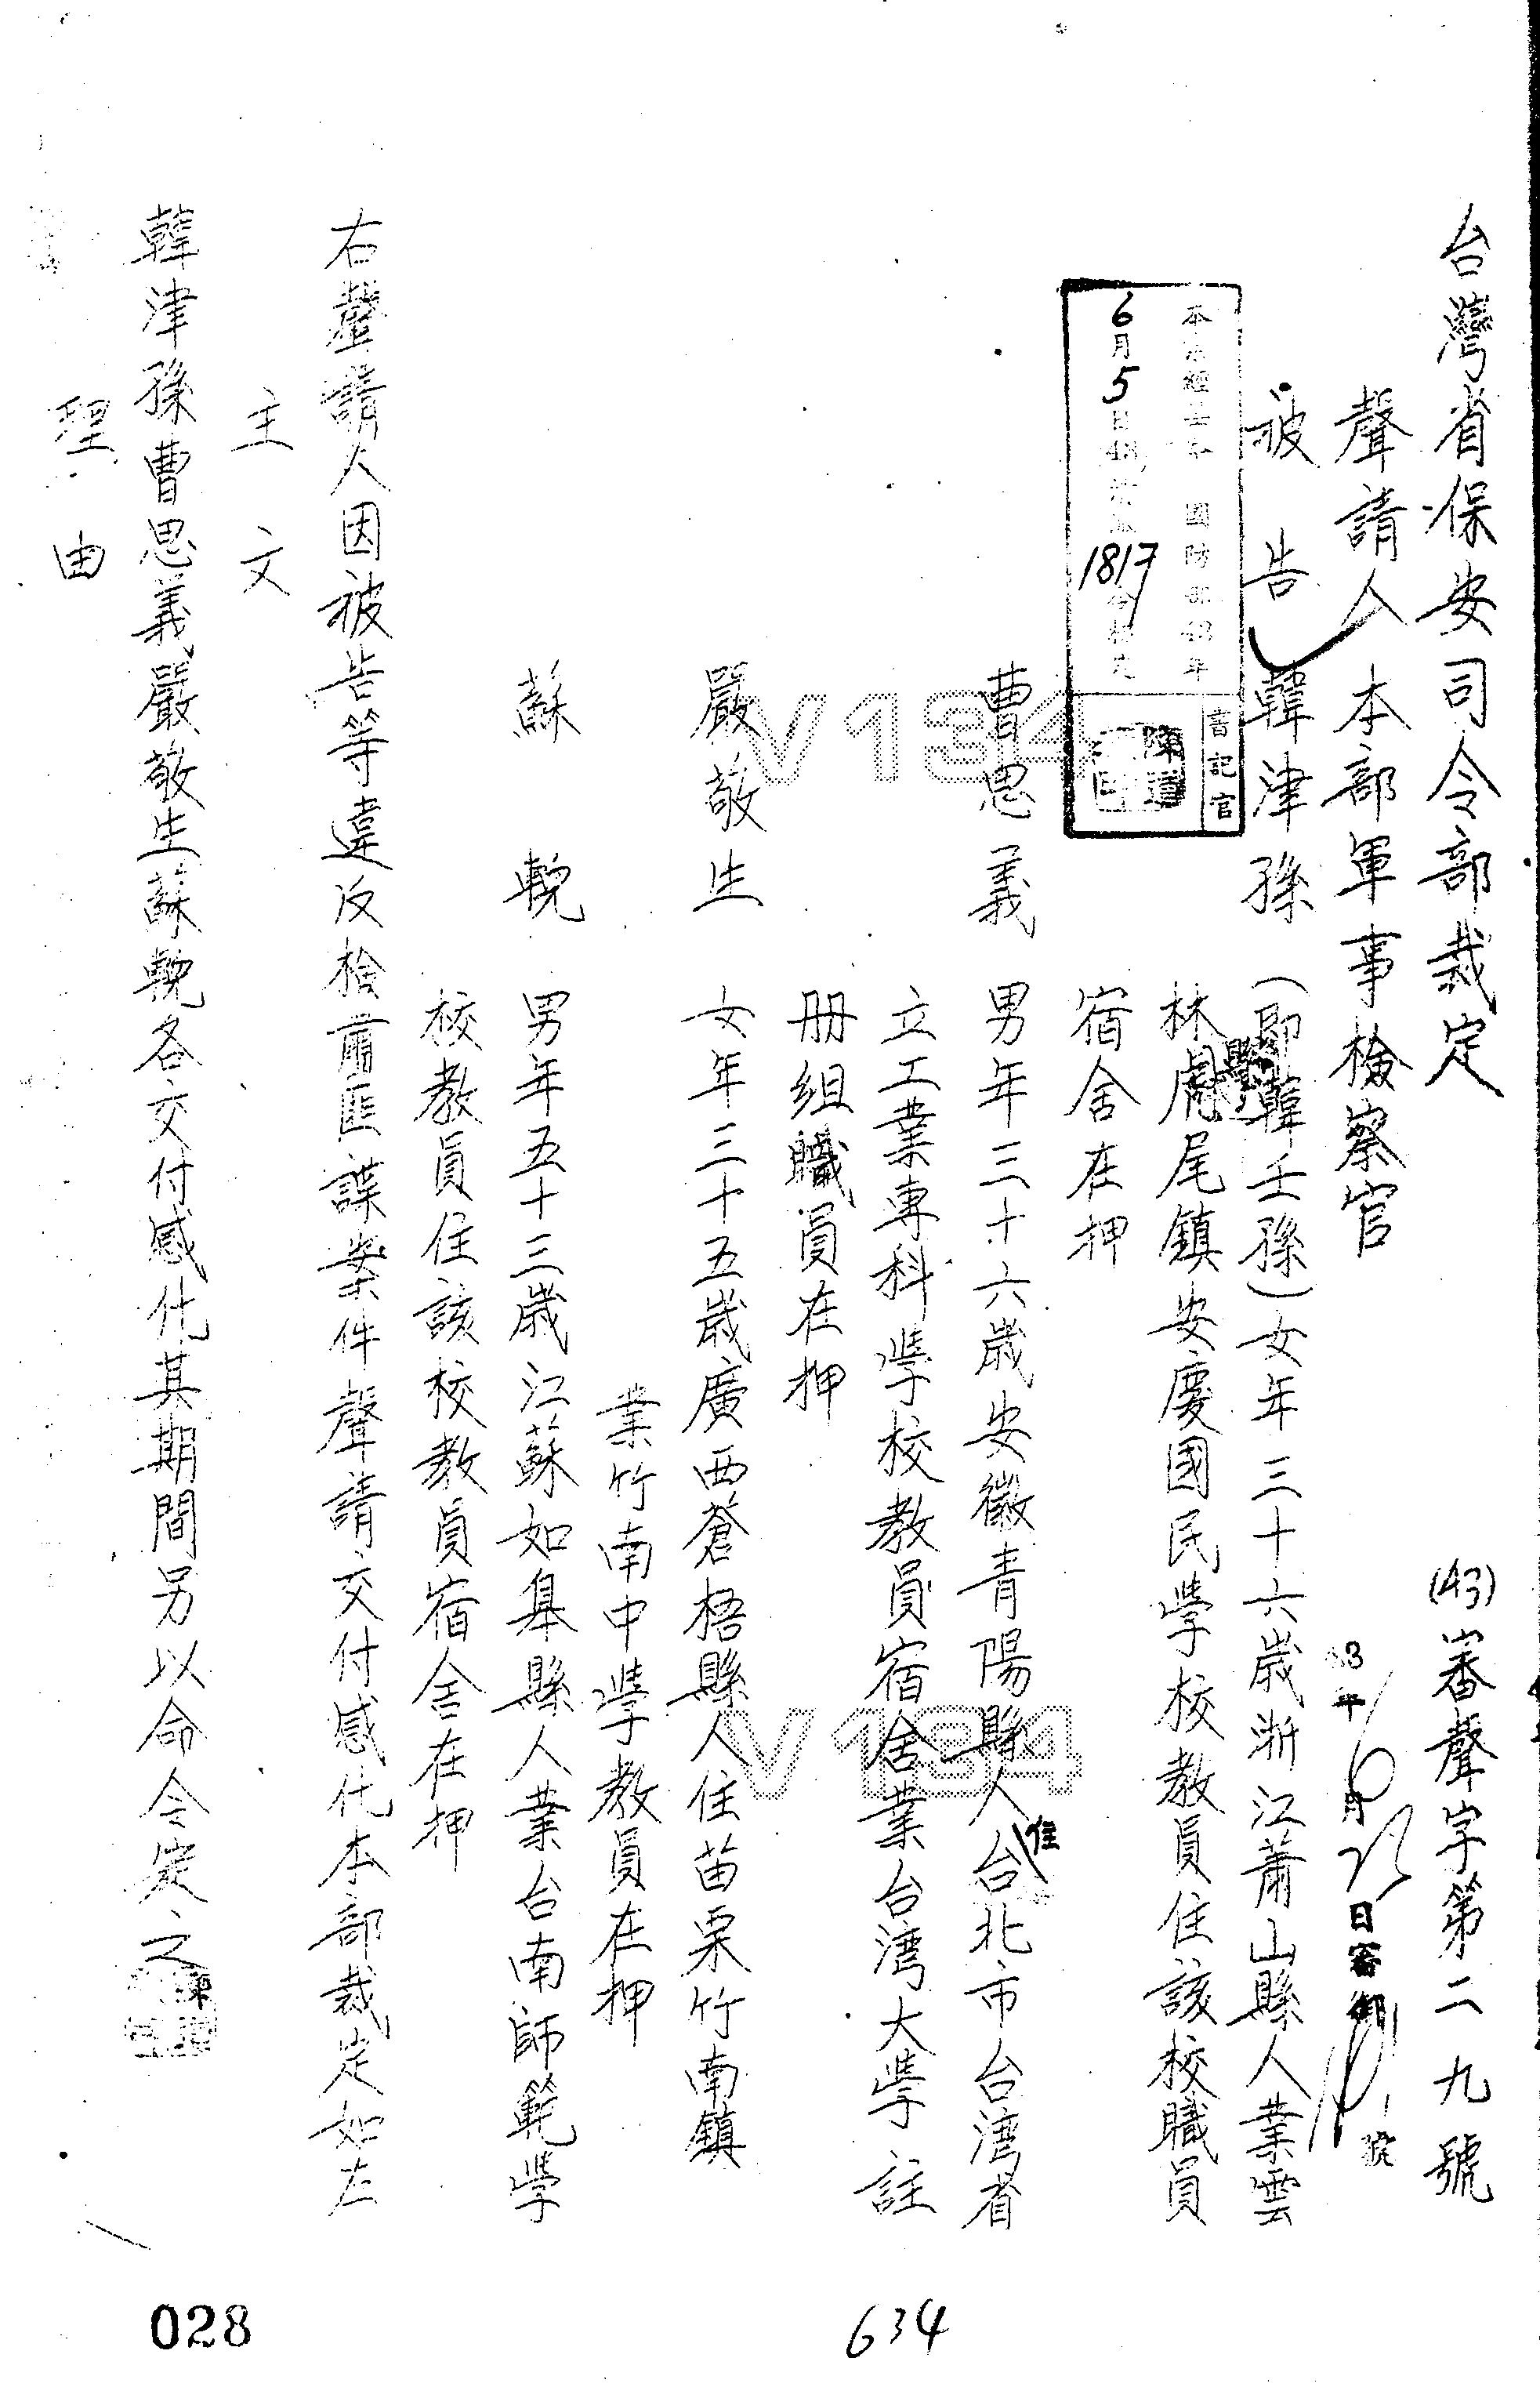 台灣省保安司令部裁定
(43)審聲字第二九號
聲請人 本部軍事檢察官
3年6月 日審 號
被告 韓津孫 (即韓壬孫)女年三十六歲浙江蕭山縣人業雲
林縣虎尾鎮安慶國民學校教員住該校職員
宿舍在押
本 經 國防部43年
6月5日 1817 令核定
書記官
曹思義 男年三十六歲安徽青陽縣人住台北市台湾省
立工業專科學校教員宿舍業台湾大學註
册組職員在押
嚴敬生 女年三十五歲廣西蒼梧縣人住苗栗竹南鎮
業竹南中學教員在押
蘇輓 男年五十三歲江蘇如皋縣人業台南師範學
校教員住該校教員宿舍在押
右聲請人因被告等違反檢肅匪諜案件聲請交付感化本部裁定如左
主文
韓津孫曹思義嚴敬生蘇輓各交付感化其期間另以命令定之
理由
V134
V134
028
634